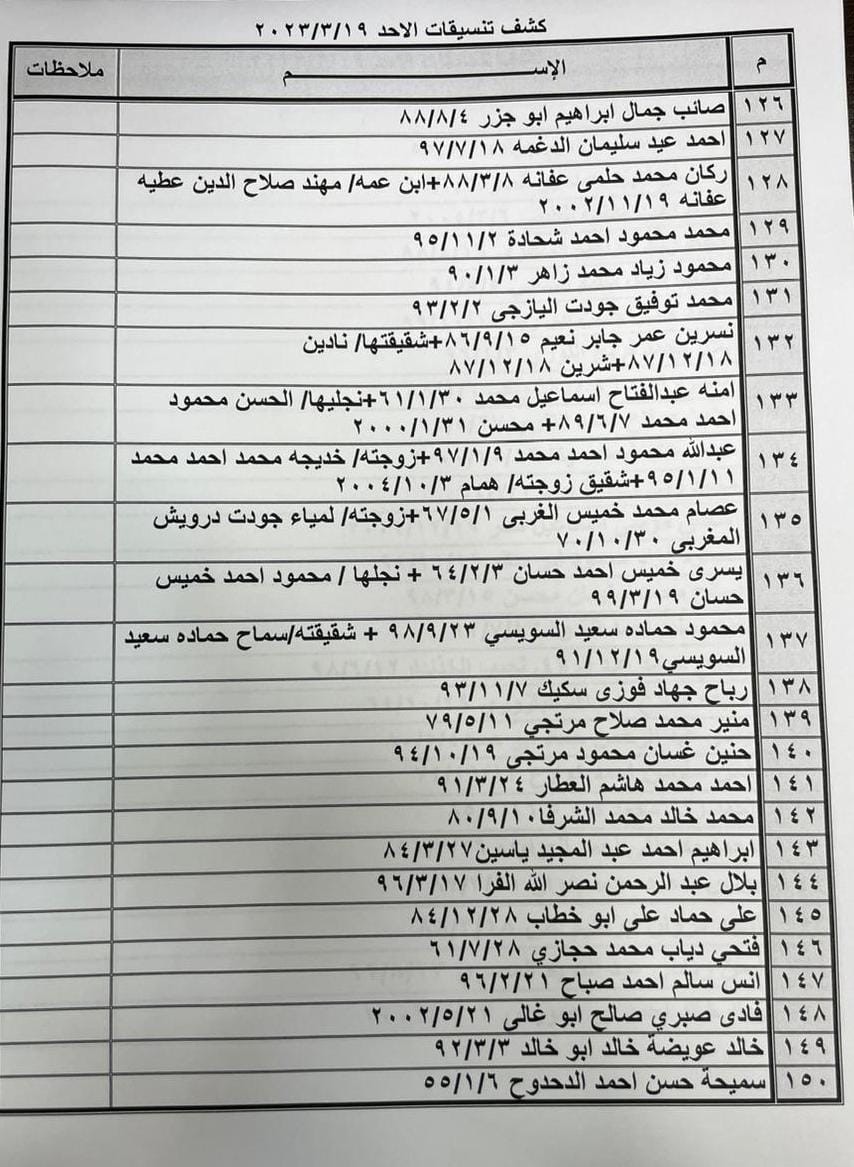 كشف تنسيقات الاحد ٢٠٢٣/٣/١٩
م الإســـــــــــــم ملاحظات
١٢٦ صائب جمال ابراهيم ابو جزر ٨٨/٨/٤
١٢٧ احمد عيد سليمان الدغمه ٩٧/٧/١٨
١٢٨ ركان محمد حلمى عفانه ٨٨/٣/٨+ابن عمه/ مهند صلاح الدين عطيه
عفانه ٢٠٠٢/١١/١٩
١٢٩ محمد محمود احمد شحادة ٩٥/١١/٢
١٣٠ محمود زياد محمد زاهر ٩٠/١/٣
١٣١ محمد توفيق جودت اليازجى ٩٣/٢/٢
١٣٢ نسرين عمر جابر نعيم ٨٦/٩/١٥+شقيقتها/ نادين
٨٧/١٢/١٨+شرين ٨٧/١٢/١٨
١٣٣ امنه عبدالفتاح اسماعيل محمد ٦١/١/٣٠+نجليها/ الحسن محمود
احمد محمد ٨٩/٦/٧+ محسن ٢٠٠٠/١/٣١
١٣٤ عبدالله محمود احمد محمد ٩٧/١/٩+زوجته/ خديجه محمد احمد محمد
٩٥/١/١١+شقيق زوجته/ همام ٢٠٠٤/١٠/٣
١٣٥ عصام محمد خميس الغربى ٦٧/٥/١+زوجته/ لمياء جودت درويش
المغربى ٧٠/١٠/٣٠
١٣٦ يسرى خميس احمد حسان ٦٤/٢/٣ + نجلها / محمود احمد خميس
حسان ٩٩/٣/١٩
١٣٧ محمود حماده سعيد السويسي ٩٨/٩/٢٣ + شقيقته/سماح حماده سعيد
السويسي٩١/١٢/١٩
١٣٨ رباح جهاد فوزى سكيك ٩٣/١١/٧
١٣٩ منير محمد صلاح مرتجي ٧٩/٥/١١
١٤٠ حنين غسان محمود مرتجى ٩٤/١٠/١٩
١٤١ احمد محمد هاشم العطار ٩١/٣/٢٤
١٤٢ محمد خالد محمد الشرفا٨٠/٩/١٠
١٤٣ ابراهيم احمد عبد المجيد ياسين٨٤/٣/٢٧
١٤٤ بلال عبد الرحمن نصر الله الفرا ٩٦/٣/١٧
١٤٥ على حماد على ابو خطاب ٨٤/١٢/٢٨
١٤٦ فتحي دياب محمد حجازي ٦١/٧/٢٨
١٤٧ انس سالم احمد صباح ٩٦/٢/٢١
١٤٨ فادى صبري صالح ابو غالى ٢٠٠٢/٥/٢١
١٤٩ خالد عويضة خالد ابو خالد ٩٢/٣/٣
١٥٠ سميحة حسن احمد الدحدوح ٥٥/١/٦